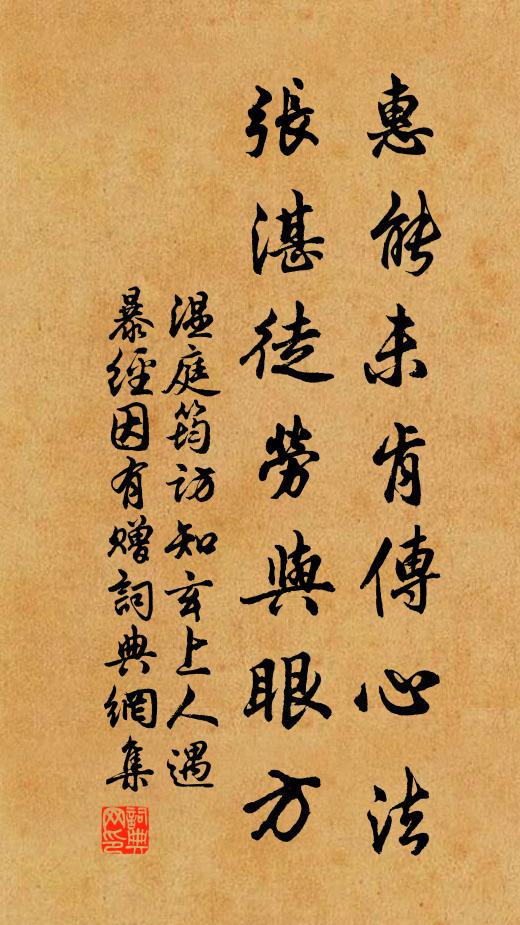 惠能未肯傳心法
張湛徒勞與眼方
温庭筠訪知玄上人遇
暴經因有贈詞典網集
詞典网印